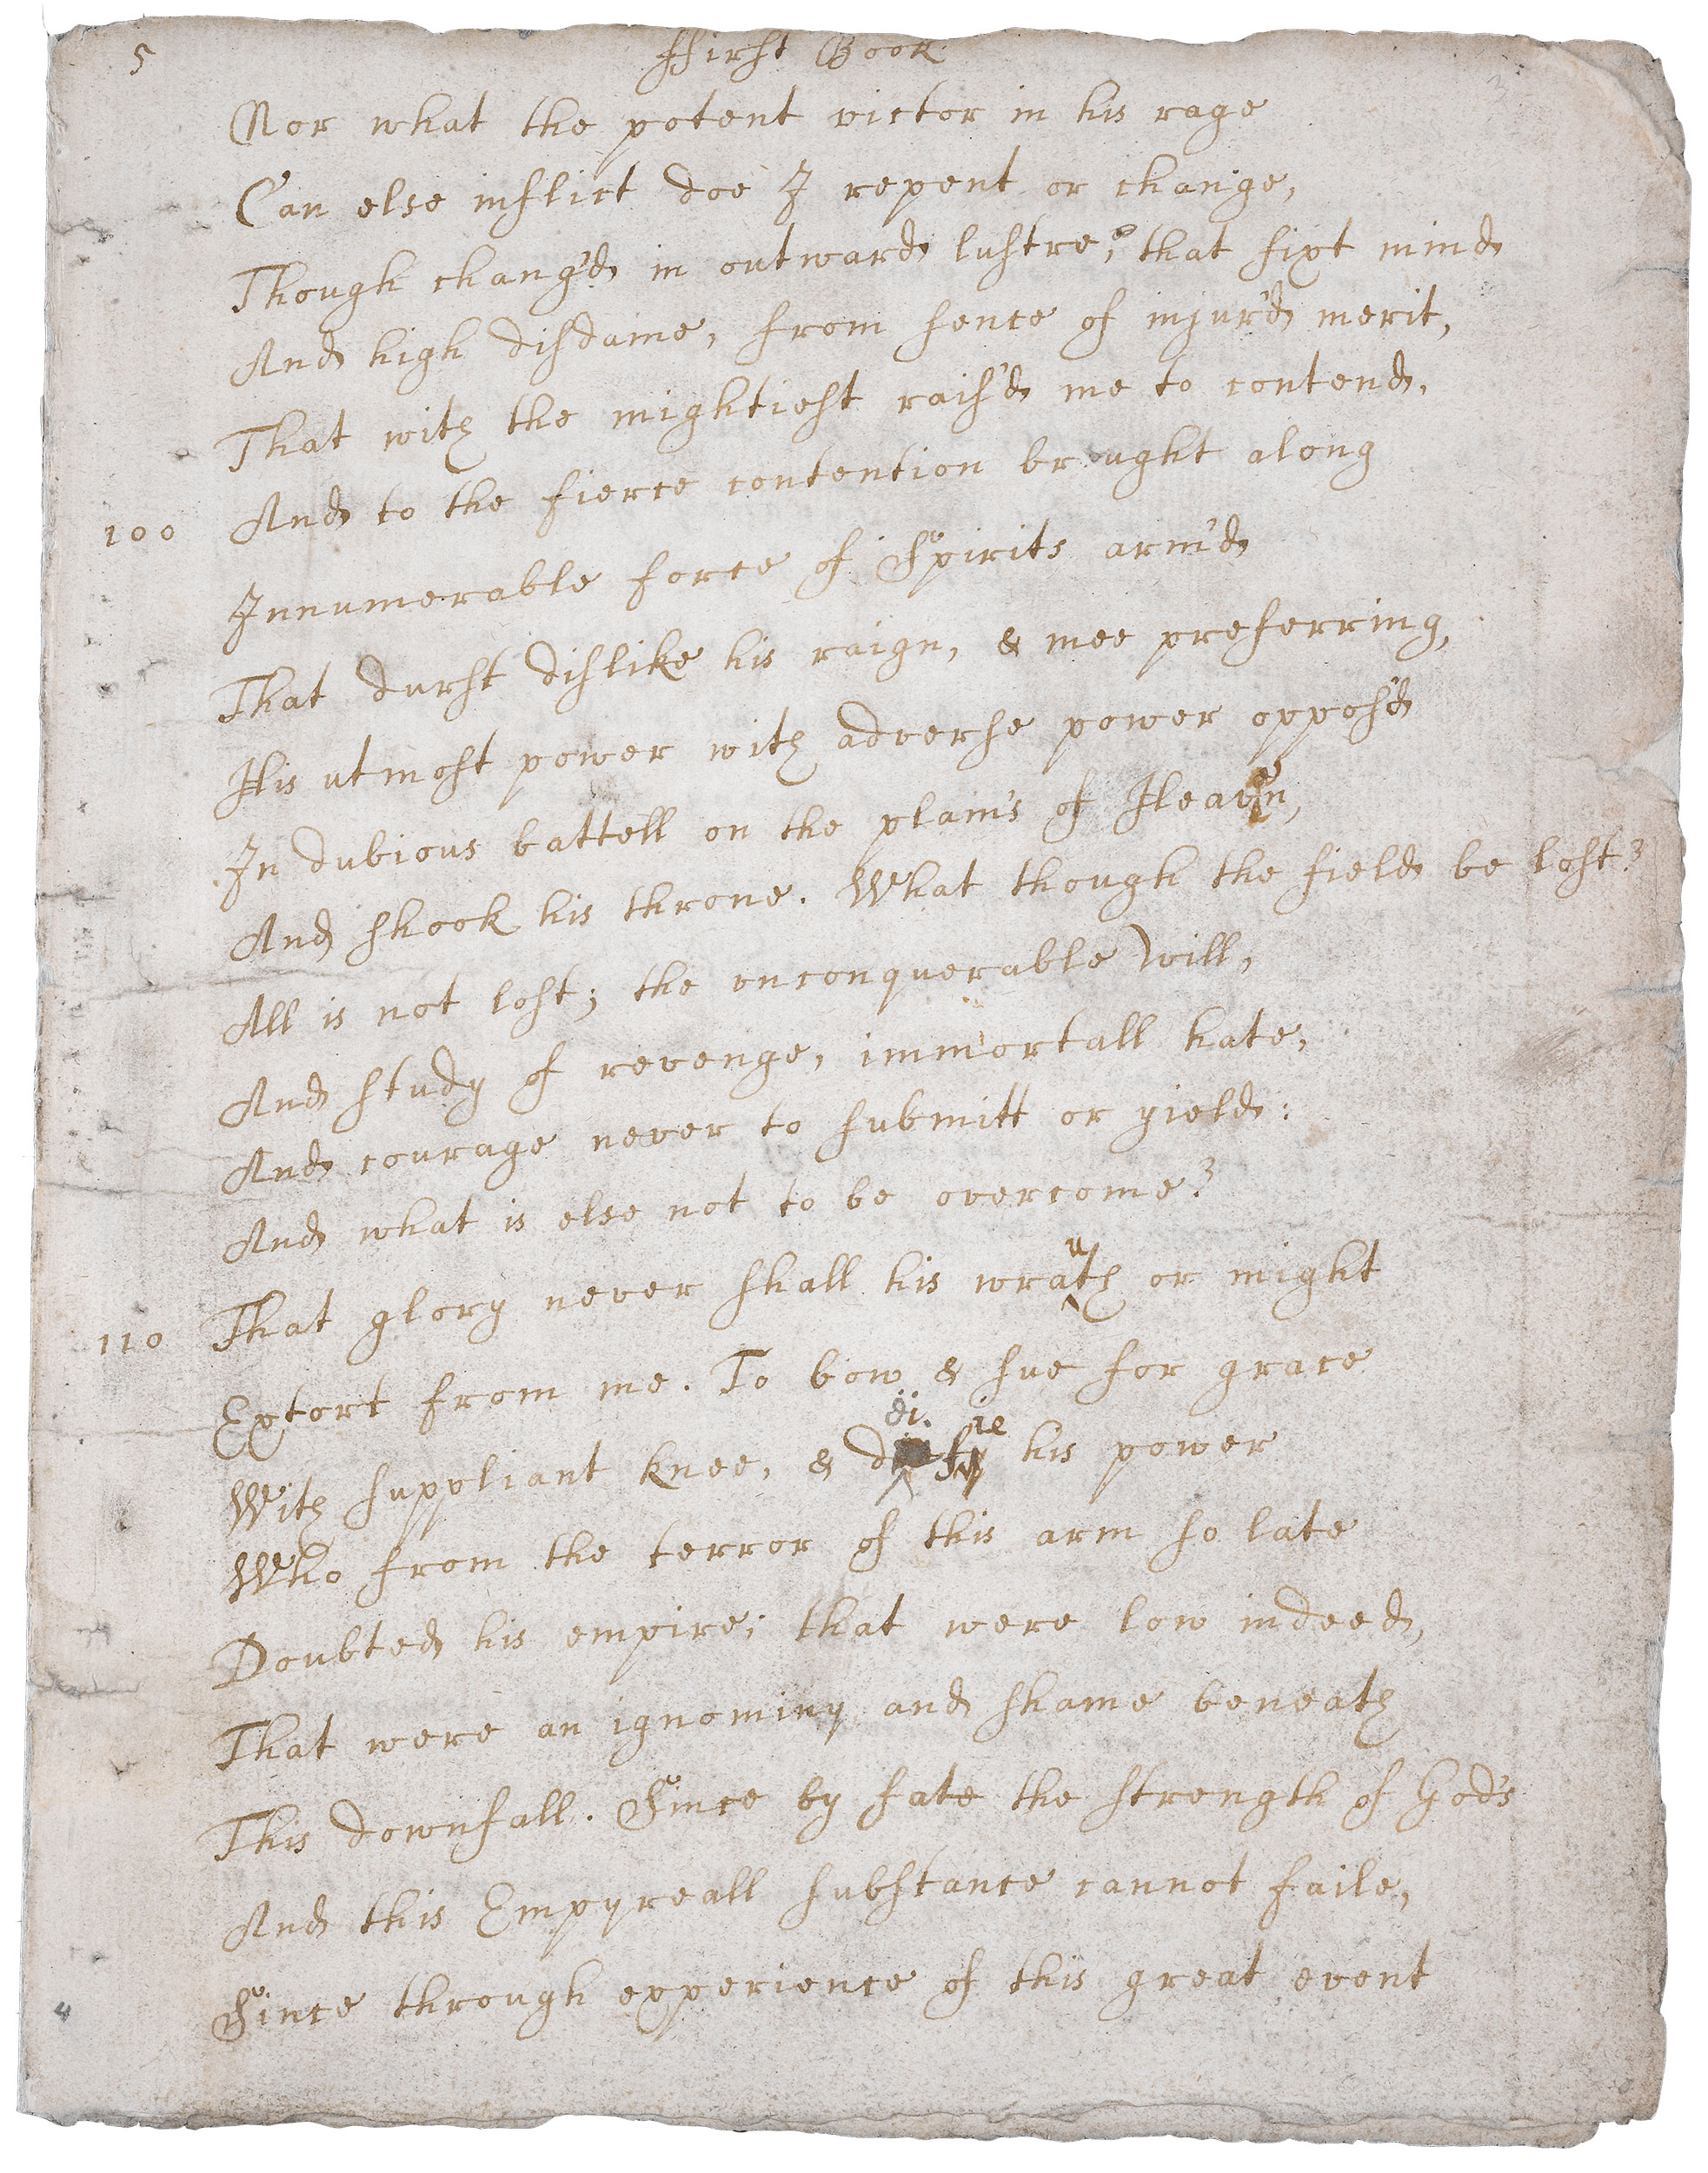 5 ffirst Book.
3
Nor what the potent victor in his rage
Can else inflict doe I repent or change,
Though chang'd in outward lustre; that fixt mind
And high disdaine, from sence of injur'd merit,
That with the mightiest rais'd me to contend,
100 And to the fierce contention brought along
Innumerable force of Spirits arm'd
That durst dislike his raign, & mee preferring,
His utmost power with adverse power oppos'd
In dubious battell on the plains of Heav'n,
And shook his throne. What though the field be lost?
All is not lost; the vnconquerable will,
And study of revenge, immortall hate,
And courage never to submitt or yield:
And what is else not to be overcome?
110 That glory never shall his wrauth or might
Extort from me. To bow & sue for grace
With suppliant knee, & deifie his power
Who from the terror of this arm so late
Doubted his empire; that were low indeed,
That were an ignominy and shame beneath
This downfall. Since by fate the strength of Gods
And this Empyreall substance cannot faile,
Since through experience of this great event
4